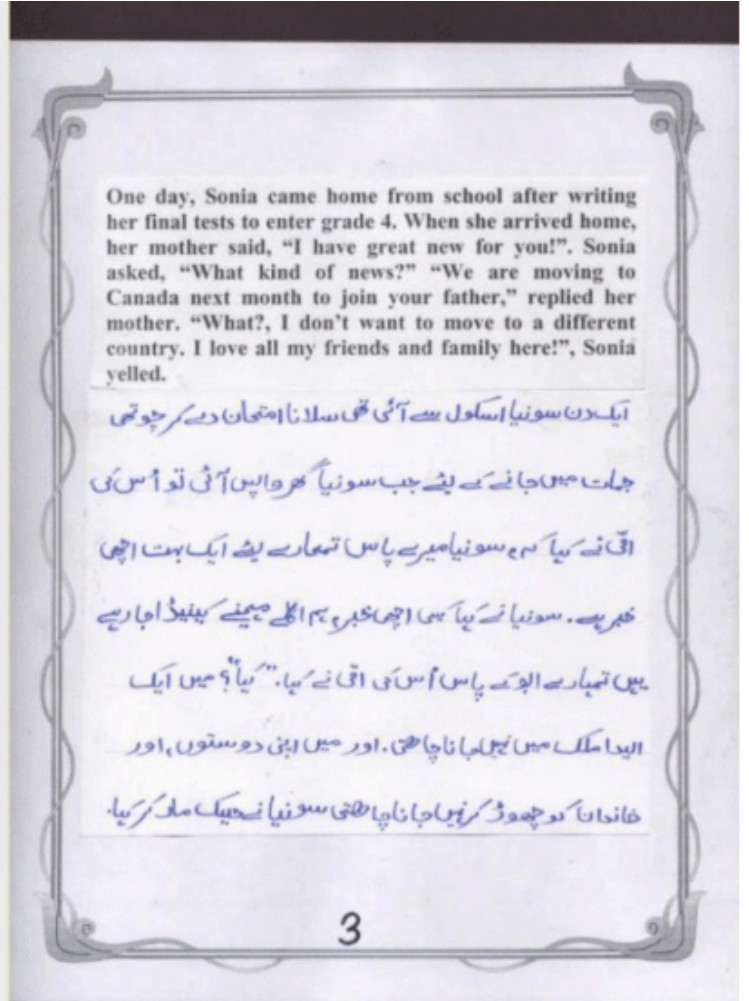 One day, Sonia came home from school after writing
her final tests to enter grade 4. When she arrived home,
her mother said, “I have great new for you!”. Sonia
asked, “What kind of news?” “We are moving to
Canada next month to join your father,” replied her
mother. “What?, I don’t want to move to a different
country. I love all my friends and family here!”, Sonia
yelled.
ایک دن سونیا اسکول سے آئی تھی سلانا امتحان دے کر چوتھی
جمات میں جانے کے لیئے جب سونیا گھر واپس آئی تو اُس کی
امّی نے کہا کہ، سونیا میرے پاس تمھارے لیئے ایک بہت اچھی
خبر ہے۔ سونیا نے کہا کسی اچھی خبر، ہم اگلے مہینے کینیڈا جا رہے
ہیں تمہارے ابو کے پاس اُس کی امّی نے کہا۔ "کیا"؟ میں ایک
الیدا ملک میں نہیں جانا چاھتی۔ اور میں اپنی دوستوں، اور
خاندان کو چھوڑ کر نہیں جانا چاھتی سونیا نے چیک مار کر کہا۔
3